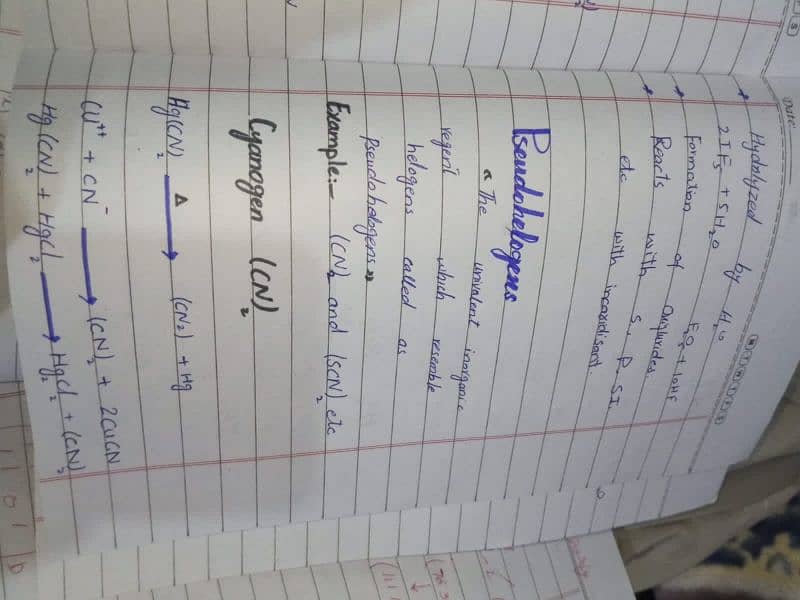 Date:
* Hydrolyzed by H₂O
2IF₅ + 5H₂O F₂O₅ + 10HF
* Formation of Oxiflurides
* Rearts with S, P, SI,
etc with incoxidisont.
Pseudohelogens
"The univalent inorganic
regent which resemble
helogens called as
Pseudohelogens"
Example:- (CN)₂ and (SCN)₂ etc
Cyanogen (CN)₂
Hg(CN)₂ Δ→ (CN₂) + Hg
Cu⁺⁺ + CN⁻ → (CN)₂ + 2CuCN
Hg(CN)₂ + HgCl₂ → Hg₂Cl₂ + (CN)₂